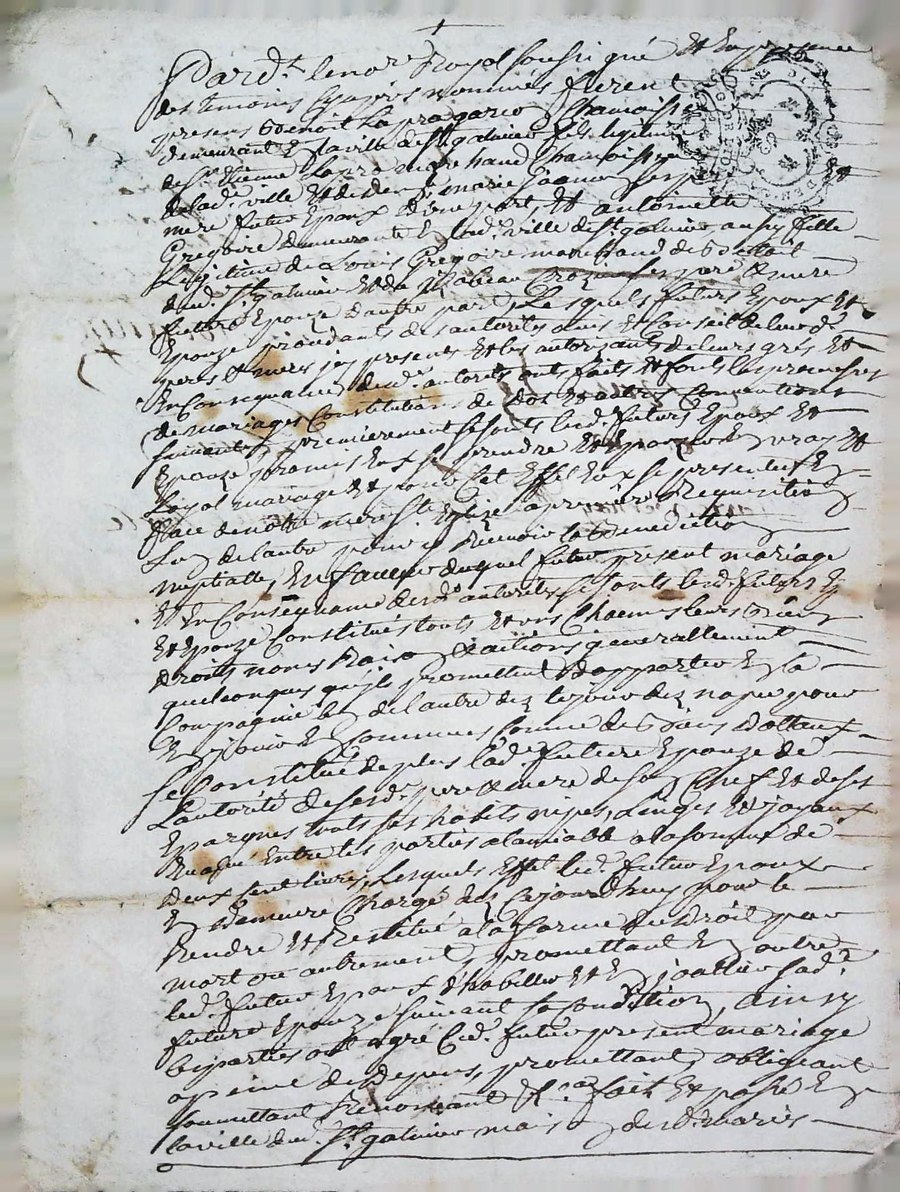 Pard.t le no.re Royal soussigné Et En presence
des temoins Cyapres nommés furent
presens Benoit La Chamoiseur
demeurant En la ville de St galmier fils legitime
de Sr Etienne marchand Chamoiseur
de lad. ville Et de de marie Jeanne ses pere Et
mere futur Epoux d'une part, Et antoinette
Gregoire demeurante En lad. ville de St galmier aussy fille
Legitime de Louis Gregoire marchand de
dud. St galmier Et de Izabeau Croze ses pere & mere
future Epouze d'autre part, Lesquels futurs Epoux Et
Epouze procedants des autorités avis Et Conseil de leursd.
peres & meres icy presents Et les autorisants de leurs grés Et
En Consequence desd. autorités ont faits Et font les promesses
de mariages Constitutions de dot Et autres Conventions
suivantes, premierement se sont lesd. futurs Epoux Et
Epouze promis Eux se prendre Et Epouzer En vray Et
Loyal mariage Et pour cet Effet Eux se presenter En
face de notre mere Ste Eglize a premiere Requisition
L'un de l'autre pour y Recevoir la Benediction
nuptialle, En faveur duquel futur present mariage
Et En Consequence desd. autorités se sont lesd. futurs Ep
Et Epouze Constitués touts Et uns Chacuns leurs Biens
droits noms Raisons & actions generallement
quelconques qu'ils promettent d'apporter En la
Compagnie l'un de l'autre dez le jour dez nopces pour
En jouir En Commun Comme de Biens dottaux
se Constitue de plus lad. future Epouze de
L'autorité de sesd. pere & mere de son Chef Et de ses
Epargnes touts ses habits nipes, Linges Et joyaux
Evalués Entre les parties a l'amiable a la somme de
deux Cent livres, desquels Effets led. futur Epoux
En demeure Chargé dez Cejourdhuy pour le
Rendre Et Restitué a la forme du Droit par
mort ou autrement, promettant En outre
led. futur Epoux d'habiller Et En joaillier sad.
future Epouze suivant sa Condition, ainsy
les parties ont agré Ced. futur present mariage
a peine de depens, promettant, obligeant
soumettant Renonçant &.a fait Et passé En
la ville dud. St galmier maison desd. mariés